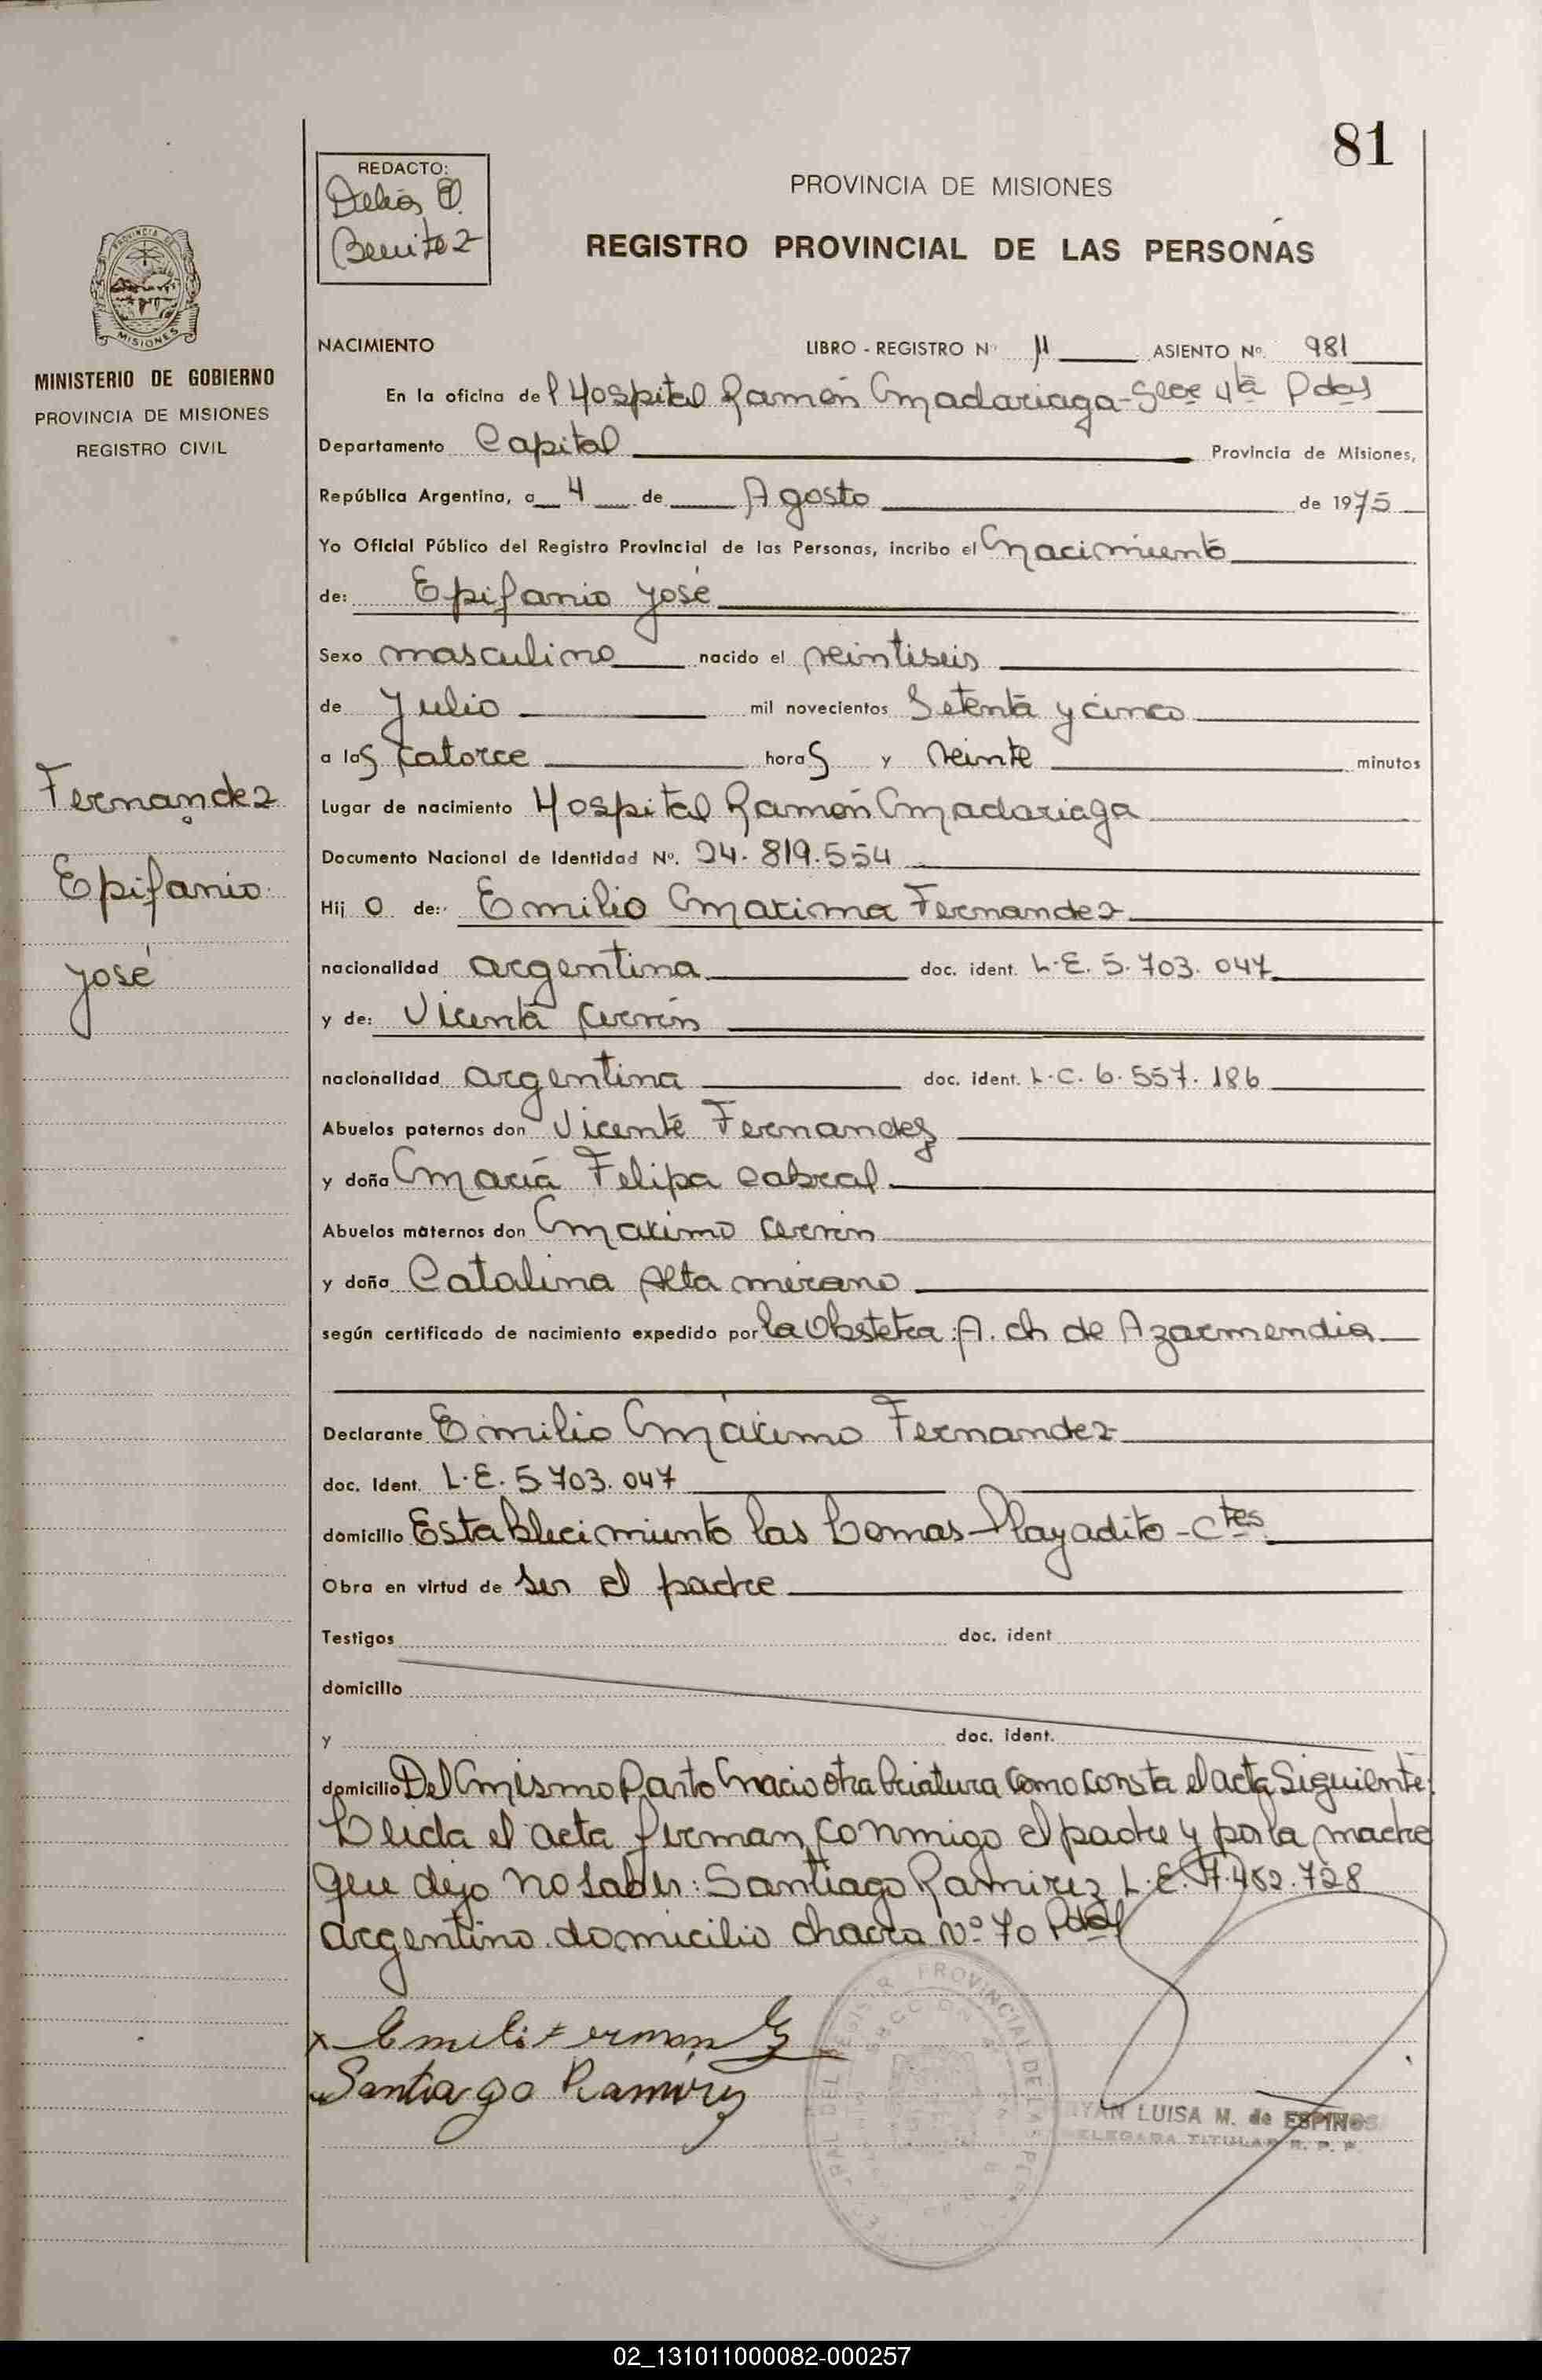 81
REDACTO:
Delia
Benitez
PROVINCIA DE MISIONES
REGISTRO PROVINCIAL DE LAS PERSONAS
PROVINCIA DE
MISIONES
MINISTERIO DE GOBIERNO
PROVINCIA DE MISIONES
REGISTRO CIVIL
NACIMIENTO LIBRO - REGISTRO Nº ASIENTO Nº 981
En la oficina del Hospital Ramón Madariaga - 4ta Pdas
Departamento Capital Provincia de Misiones,
República Argentina, a 4 de Agosto de 1975
Yo Oficial Público del Registro Provincial de las Personas, incribo el nacimiento
de: Epifanio José
Sexo masculino nacido el veintiseis
de Julio mil novecientos Setenta y cinco
a las catorce horas y veinte minutos
Fernandez
Epifanio
José
Lugar de nacimiento Hospital Ramón Madariaga
Documento Nacional de Identidad Nº. 24.819.554
Hijo de: Emilio Maximo Fernandez
nacionalidad argentina doc. ident. L.E. 5.703.047
y de: Vicenta
nacionalidad argentina doc. ident. L.C. 6.557.186
Abuelos paternos don Vicente Fernandez
y doña Maria Felipa Cabral
Abuelos maternos don Maximo
y doña Catalina Altamirano
según certificado de nacimiento expedido por la Obstetra: A. ch de Azarmendia
Declarante Emilio Máximo Fernandez
doc. Ident. L.E. 5703.047
domicilio Establecimiento las Lomas - Playadito - Ctes
Obra en virtud de ser el padre
Testigos doc. ident
domicilio
y doc. ident.
domicilio Del mismo Parto nacio otra Criatura como consta el acta Siguiente:
Leida el acta firman conmigo el padre y por la madre
que dijo no saber: Santiago Ramirez L.E. 7.462.728
argentino domicilio chacra Nº 70 Pdas
x Emilio Fernandez
Santiago Ramirez
LUISA M. de ESPINOS
DELEGADA TITULAR R. P. P.
02_131011000082-000257